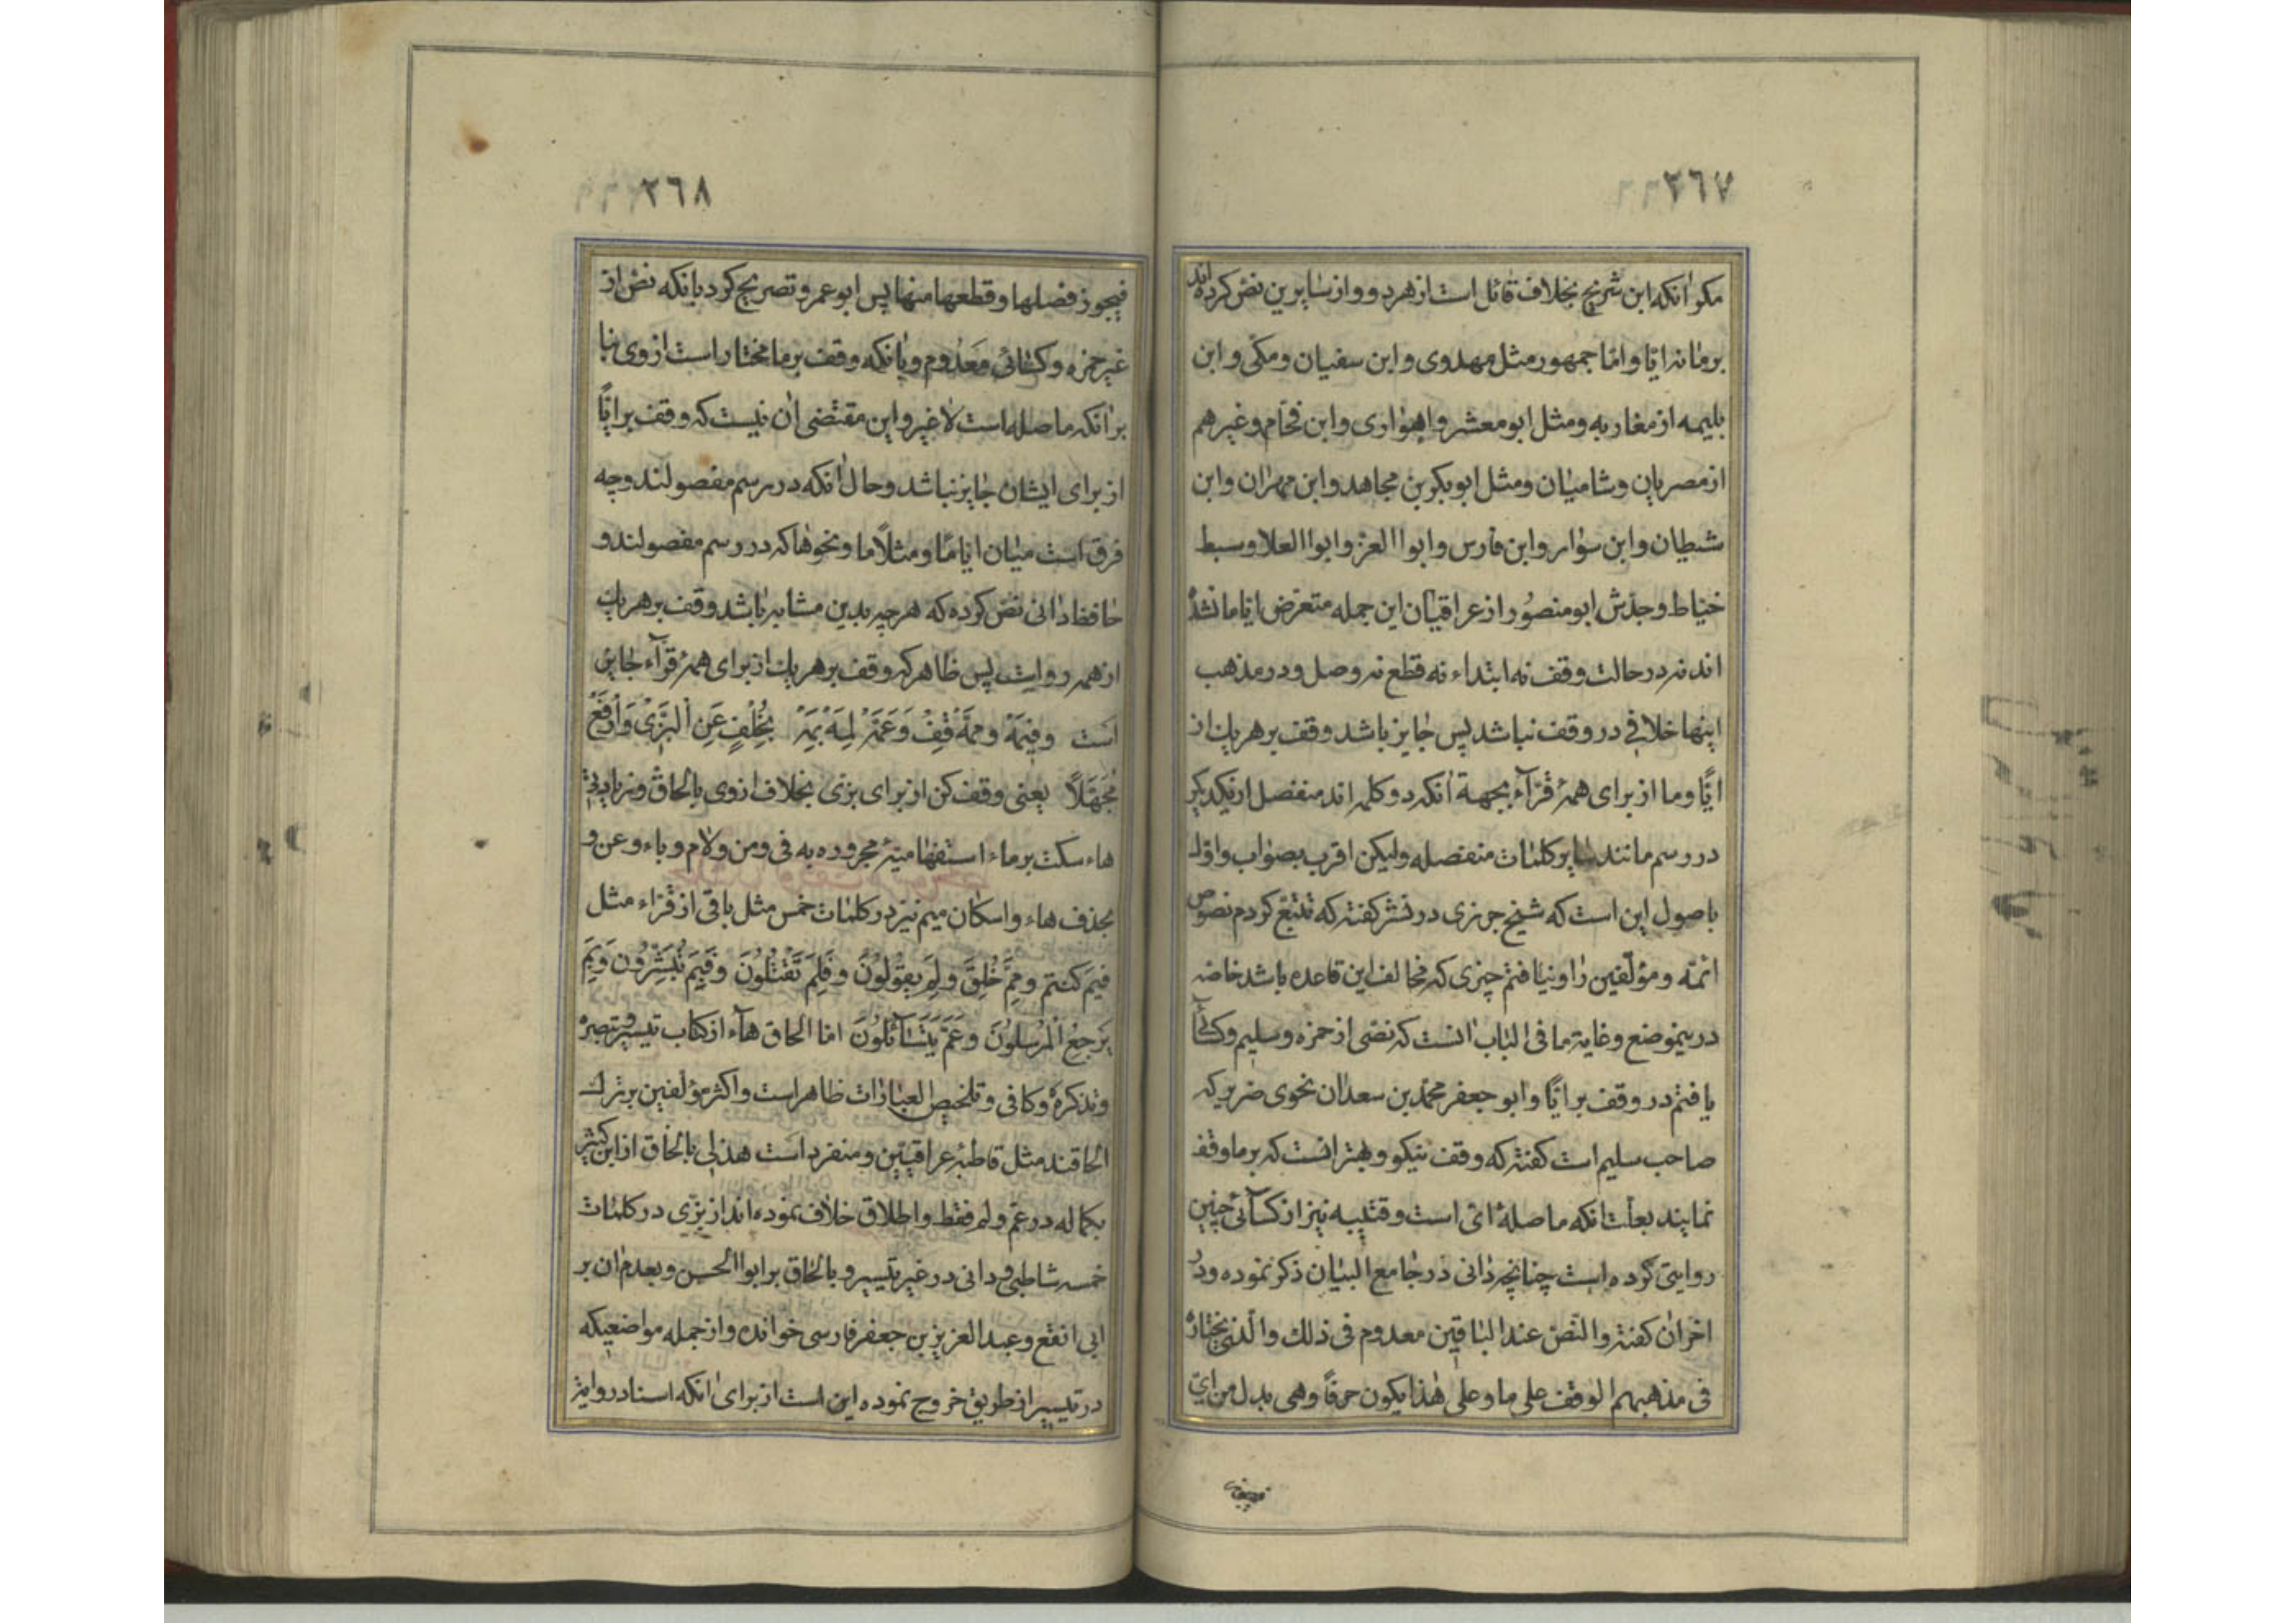 ٢٦٧
مکر آنکه ابن شریح بخلاف قائل است از هر دو و از سایرین نص کرده‌اند
بر ما نه ایّا و امّا جمهور مثل مهدوی و ابن سفیان و مکّی و ابن
بلیمه از مغاربه و مثل ابو معشر و اهوازی و ابن فحّام و غیرهم
از مصریان و شامیان و مثل ابو بکر بن مجاهد و ابن مهران و ابن
شیطان و ابن سوار و ابن فارس و ابوا العز و ابوا العلا و سبط
خیاط و جدّش ابو منصور از عراقیان این جمله متعرض ایاما نشده
اند نه در حالت وقف نه ابتداء نه قطع نه وصل و در مذهب
اینها خلافی در وقف نباشد پس جایز باشد وقف بر هر یک از
ایّا و ما از برای همۀ قرّآء بجهة آنکه دو کلمه اند منفصل از یکدیکر
در رسم مانند سایر کلمات منفصله ولیکن اقرب بصواب و اولـ
باصول این است که شیخ جزری در نشر کفته که تتبّع کردم نصوص
ائمّه و مؤلّفین را و نیافتم چیزی که مخالف این قاعده باشد خاصّه
درینموضع و غایة ما فی الباب آنست که نصّی از حمزه و سلیم و کسآئی
یافتم در وقف بر ایّا و ابو جعفر محمّد بن سعدان نحوی ضریر که
صاحب سلیم است کفته که وقف نیکو و بهتر انست که بر ما وقف
نمایند بعلّت آنکه ما صلۀ ائ است و قتیبه نیز از کسآئی چنین
روایتی کرده است چنانچه دانی در جامع البیان ذکر نموده و در
اخر ان کفته و النّص عند الباقین معدوم فی ذلك و الّذی نختاره
فی مذهبهم الوقف علی ما و علی هٰذا یکون حرفاً و هی بدل من ای
فیجوز
٢٦٨
فیجوز فصلها و قطعها منها پس ابو عمرو تصریح کرد بانکه نص از
غیر حمزه و کسائی معدوم و بانکه وقف بر ما مختار است از وی بنا
بر آنکه ما صله است لا غیر و این مقتضی ان نیست که وقف بر ایّاً
از برای ایشان جایز نباشد و حال آنکه در رسم مفصولند و چه
فرق است میان ایّاما و مثلاً ما و نحوها که در رسم مفصولند و
حافظ دانی نصّ کرده که هر چه بدین مشابه باشد وقف بر هر یك
از همه رواست پس ظاهر که وقف بر هر یك از برای همۀ قرّآء جایز
است وَفِیمَهْ وَ مِمَّهْ قِفْ وَ عَمَّهْ لِمَهْ بِمَهْ بِخُلْفٍ عَنِ اَلْبَزِّیْ وَ اَرْفَعْ
مُجَهِّلاً یعنی وقف کن از برای بزّی بخلاف از وی بالحاق و زیادتی
هاء سکت بر ماء استفهامیّۀ مجروره به فی و من و لام و باء و عن و
بحذف هاء و اسکان میم نیز در کلمات خمس مثل باقی از قرّاء مثل
فِیمَ کنتم و مِمَّ خُلِقَ و لِمَ یَقُولُونَ و فَلِمَ تَقْتُلُونَ وَ فَبِمَ تُبَشِّرُونَ وَ بِمَ
یَرْجِعُ اْلمُرْسَلُونَ وَ عَمَّ یَتَسَآئَلُونَ امّا الحاق هآء از کتاب تیسیر و تبصره
و تذکره و کافی و تلخیص العبارات ظاهر است و اکثر مؤلفین بر ترك
الحاقند مثل قاطبۀ عراقیّین و منفرد است هذلی بالحاق از ابن کثیر
بکماله در عَمّ و لم فقط و اطلاق خلاف نموده اند از بزّی در کلمات
خمسه شاطبی و دانی در غیر تیسیر و بالحاق بر ابوا الحسن و بعدم ان بر
ابی الفتح و عبد العزیز بن جعفر فارسی خوانده و از جمله مواضعیکه
در تیسیر از طریق خروج نموده این است از برای آنکه اسناد روایة